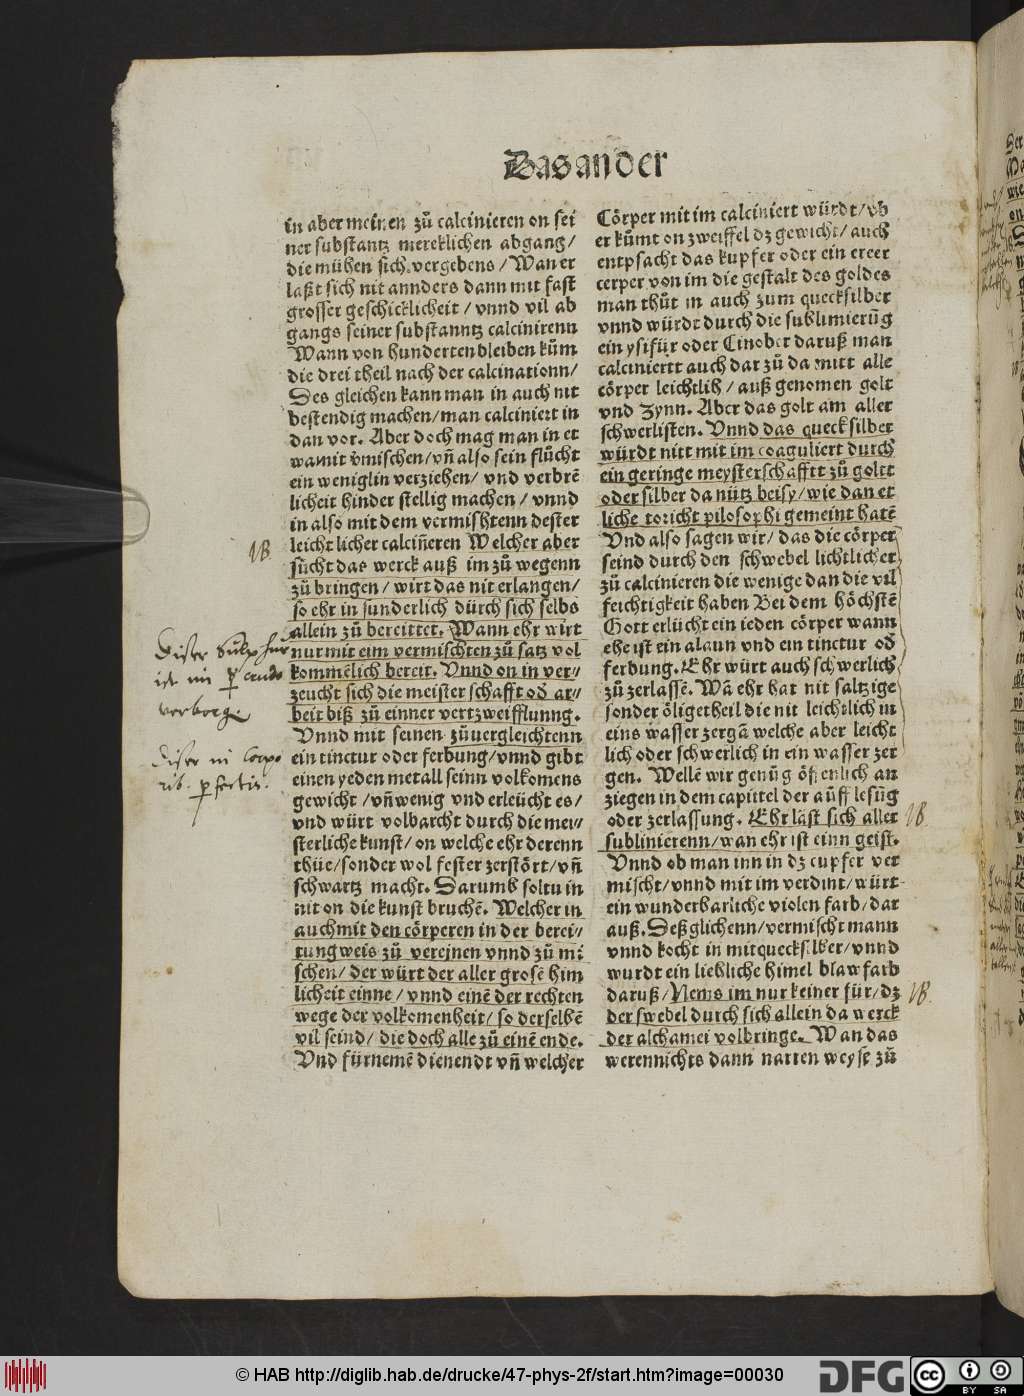 Das ander
in aber meinen zů calcinieren on sei
ner substantz mercklichen abgang/
die mühen sich vergebens/ Wan er
laßt sich nit annders dann mit fast
grosser geschicklicheit/ vnnd vil ab
gangs seiner substanntz calcinirenn
Wann von hunderten bleiben kům
die drei theil nach der calcinationn/
Des gleichen kann man in auch nit
bestendig machen/man calciniert in
dan vor. Aber doch mag man in et
wamit v̄mischen/vn̄ also sein flücht
ein weniglin verziehen/ vnd verbrē
licheit hinder stellig machen/ vnnd
in also mit dem vermishtenn dester
leicht licher calcin̄eren Welcher aber
sůcht das werck auß im zů wegenn
zů bringen/ wirt das nit erlangen/
so ehr in sunderlich durch sich selbs
allein zů bereittet. Wann ehr wirt
nur mit eim vermischten zů satz vol
kommēlich bereit. Vnnd on in ver/
zeucht sich die meister schafft od̄ ar/
beit biß zů einner vertzweifflunng.
Vnnd mit seinen zůuergleichtenn
ein tinctur oder ferbung/vnnd gibt
einen yeden metall seinn volkomens
gewicht/ vn̄wenig vnd erleücht es/
vnd würt volbarcht durch die mei/
sterliche kunst/ on welche ehr derenn
thüe/sonder wol fester zerstört/vn̄
schwartz macht. Darumb soltu in
nit on die kunst bruchē. Welcher in
auch mit den cörperen in der berei/
tungweis zů vereinen vnnd zů mi
schen/ der würt der aller grosē him
licheit einne/ vnnd einē der rechten
wege der volkomenheit/ so derselbē
vil seind/ die doch alle zů einē ende.
Vnd fürnemē dienendt vn̄ welcher
Cörper mit im calciniert würdt/ vb
er kůmt on zweiffel dz gewicht/ auch
entpfacht das kupfer oder ein erer
cerper von im die gestalt des goldes
man thůt in auch zum quecksilber
vnnd würdt durch die sublimierūg
ein ysifür oder Cinober daruß man
calciniertt auch dar zů da mitt alle
cörper leichtlih/ auß genomen golt
vnd Zynn. Aber das golt am aller
schwerlisten. Vnnd das quecksilber
würdt nitt mit im coaguliert durch
ein geringe meysterschafftt zů goltt
oder silber da nütz beisy/wie dan et
liche toricht pilosophi gemeint hatē
Vnd also sagen wir/ das die cörper
seind durch den schwebel lichtlicher
zů calcinieren die wenige dan die vil
feichtigkeit haben Bei dem höchstē
Gott erlücht ein ieden cörper wann
ehe ist ein alaun vnd ein tinctur od̄
ferbung. Ehr würt auch schwerlich
zů zerlassē. Wā ehr hat nit saltzige
sonder öligetheil die nit leichtlich in
eins wasser zergā welche aber leicht
lich oder schwerlich in ein wasser zer
gen. Wellē wir genůg öffenlich an
ziegen in dem capittel der aůff lesūg
oder zerlassung. Ehr läst sich aller
sublinierenn/wan ehr ist einn geist.
Vnnd ob man inn in dz cupfer ver
mischt/vnnd mit im verdint/würt
ein wunderbarliche violen farb/dar
auß. Deßglichenn/vermischt mann
vnnd kocht in mitquecksilber/vnnd
wurdt ein liebliche himel blaw farb
daruß/Nems im nur keiner für/dz
der swebel durch sich allein da werck
der alchamei volbringe. Wan das
werennichts dann narren weyse zů
NB
Diser Sulphur
ist im p̱ crudo
verborgē.
Diser in Corpo
rib. perfectis.
NB
NB
© HAB http://diglib.hab.de/drucke/47-phys-2f/start.htm?image=00030
DFG
cc
BY SA